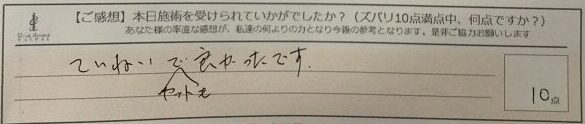 【ご感想】本日施術を受けられていかがでしたか？（ズバリ10点満点中、何点ですか？）
あなた様の率直な感想が、私達の何よりの力となり今後の参考となります。是非ご協力お願いします
ていねいで良かったです。
セットも
10点